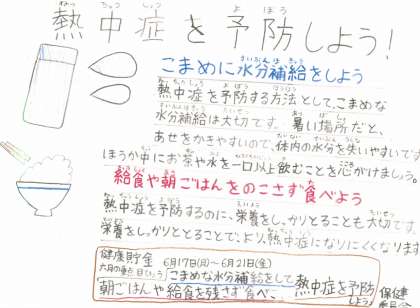 熱中症を予防しよう!
こまめに水分補給をしよう
熱中症を予防する方法として、こまめな
水分補給は大切です。暑い場所だと、
あせをかきやすいので、体内の水分を失いやすいです
ほうか中にお茶や水を一口以上飲むことを心がけましょう。
給食や朝ごはんをのこさず食べよう
熱中症を予防するのに、栄養をしっかりとることも大切です。
栄養をしっかりととることで、より、熱中症になりにくくなります
健康貯金 6月17日(月)~6月21日(金)
六月の重点目ひょう
こまめな水分補給をして
朝ごはんや給食を残さず食べ、
熱中症を予防
しよう
保健